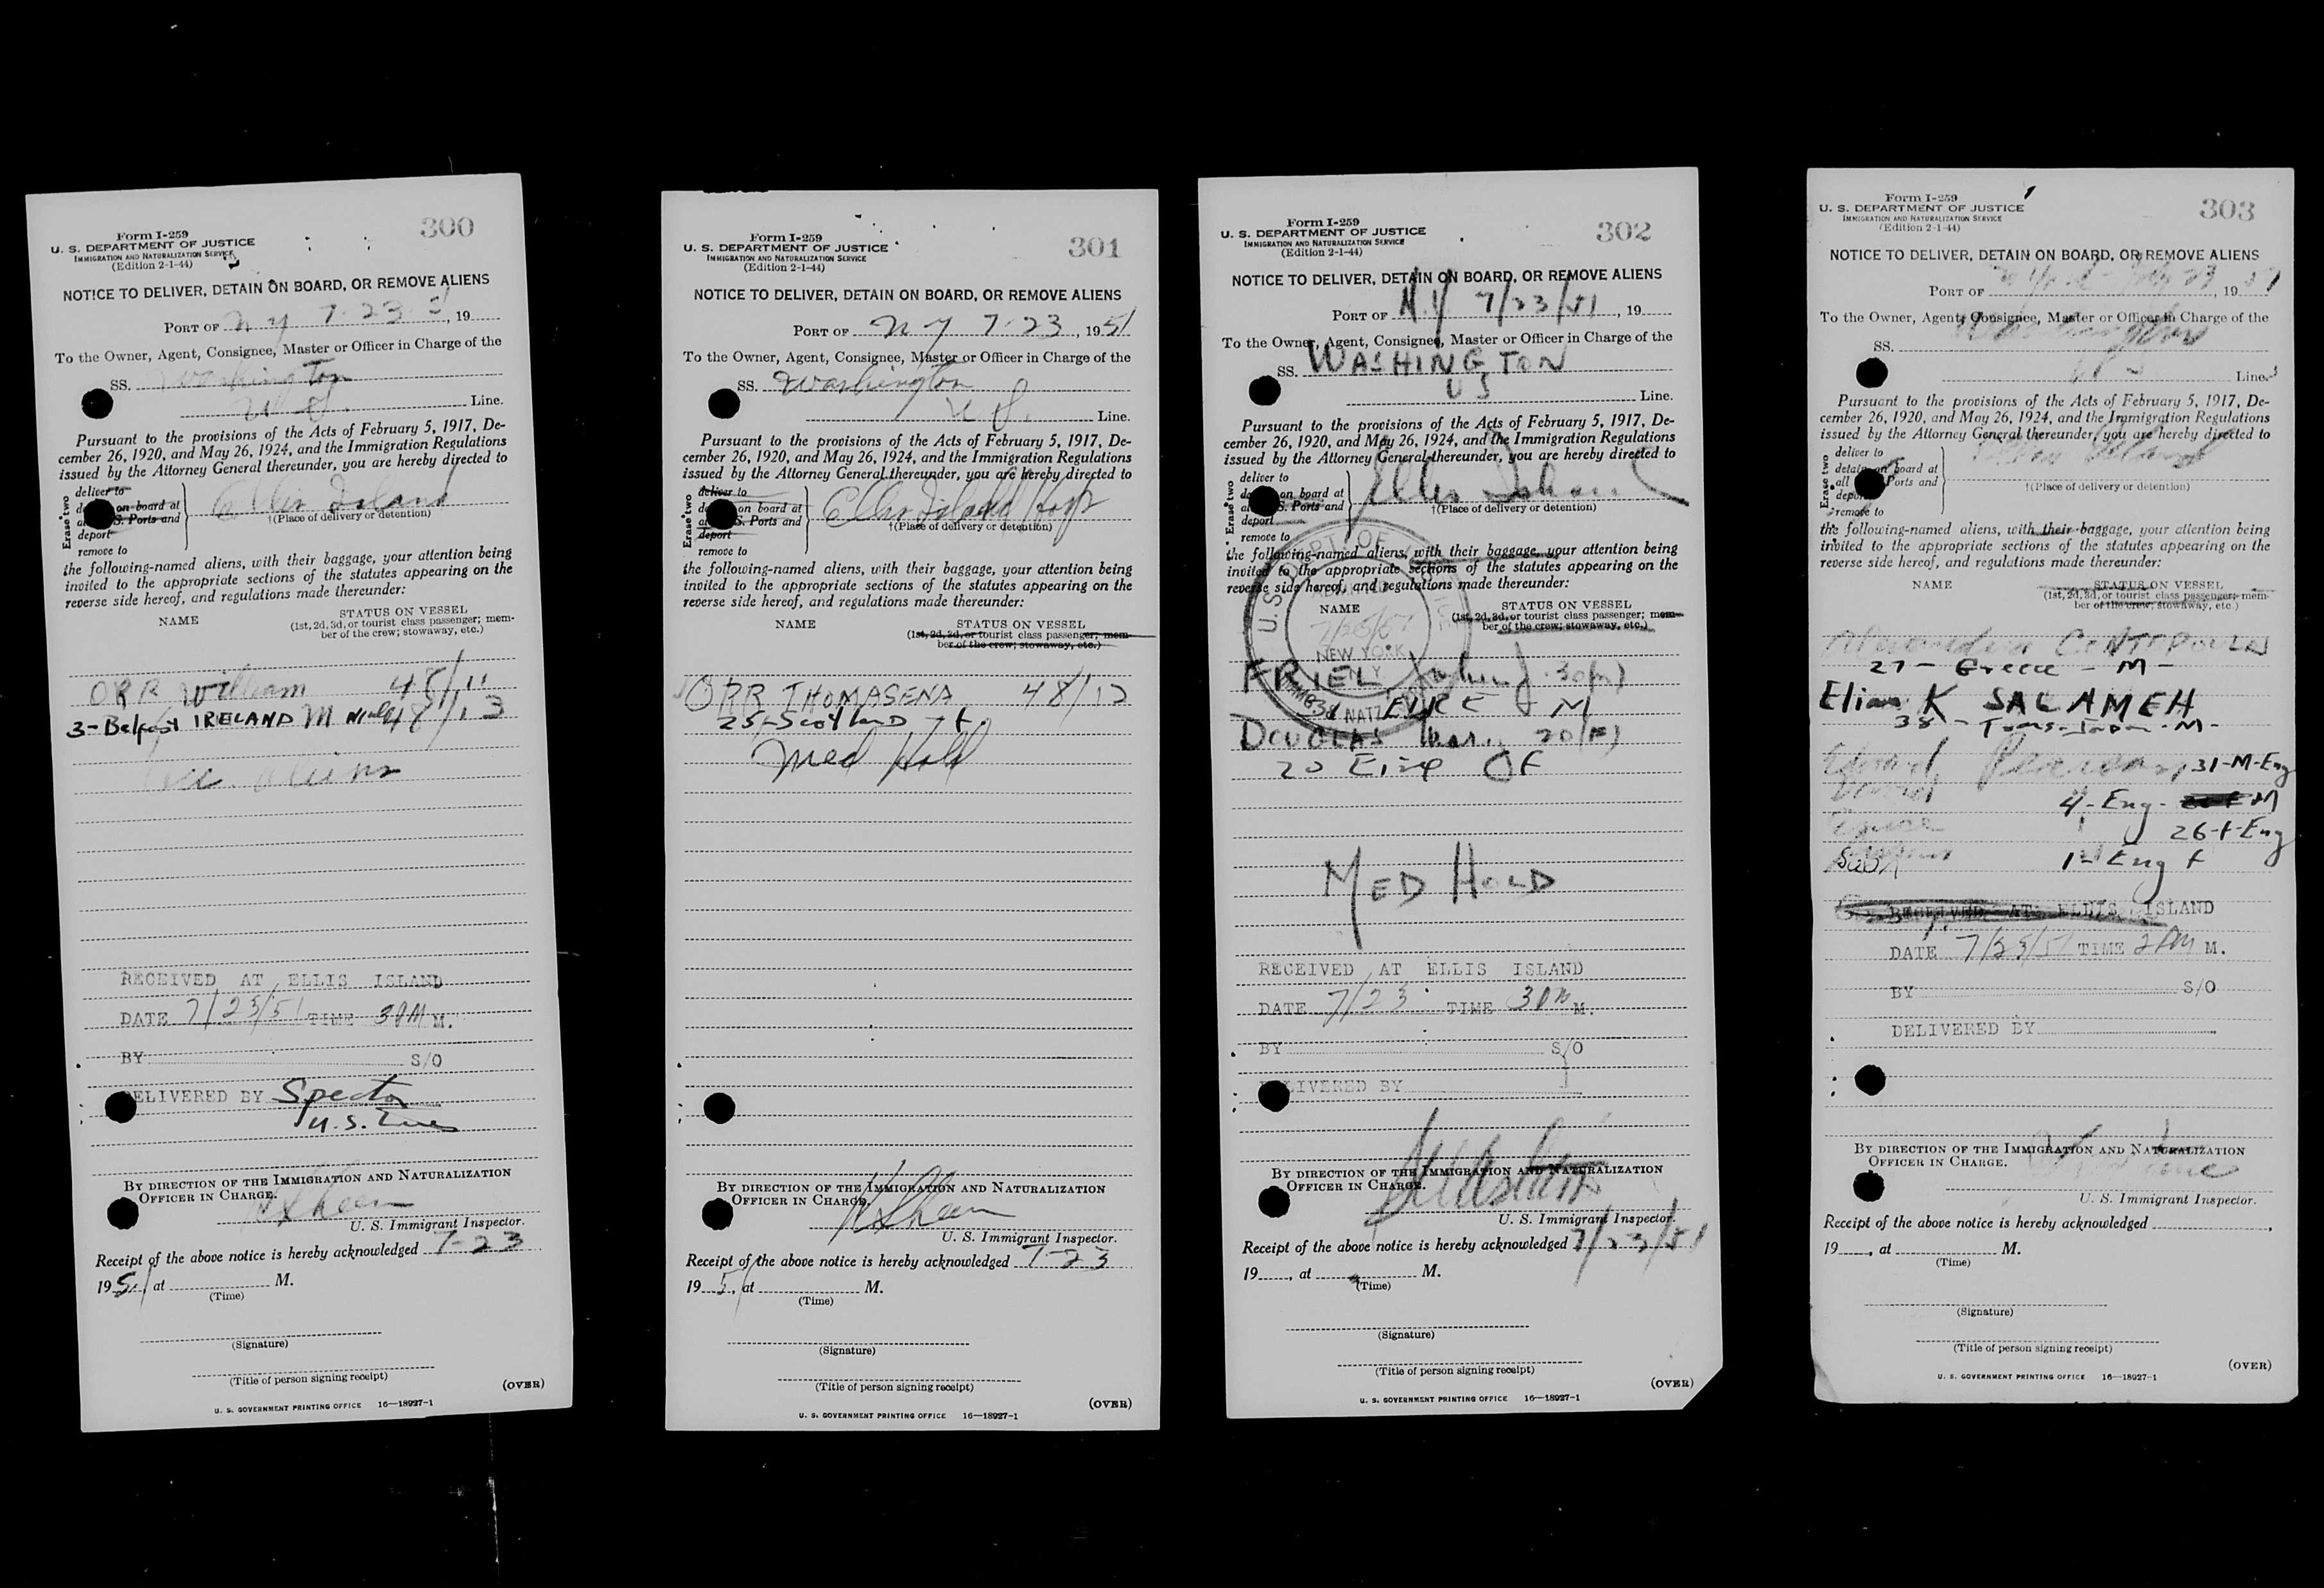 300
Form I-259
U. S. DEPARTMENT OF JUSTICE
IMMIGRATION AND NATURALIZATION SERVICE
(Edition 2-1-44)
NOTICE TO DELIVER, DETAIN ON BOARD, OR REMOVE ALIENS
PORT OF N Y 7-23-51, 19
To the Owner, Agent, Consignee, Master or Officer in Charge of the
SS. Washington
U S. Line.
Pursuant to the provisions of the Acts of February 5, 1917, De-
cember 26, 1920, and May 26, 1924, and the Immigration Regulations
issued by the Attorney General thereunder, you are hereby directed to
Erase two
deliver to
on board at
S. Ports and
deport
remove to
Ellis Island
†(Place of delivery or detention)
the following-named aliens, with their baggage, your attention being
invited to the appropriate sections of the statutes appearing on the
reverse side hereof, and regulations made thereunder:
NAME
STATUS ON VESSEL
(1st, 2d, 3d, or tourist class passenger; mem-
ber of the crew; stowaway, etc.)
ORR William 48/11
3-Belfast IRELAND M 48/13
RECEIVED AT ELLIS ISLAND
DATE 7/23/51 TIME 3PM M.
BY S/O
DELIVERED BY Spector
U.S. Lines
BY DIRECTION OF THE IMMIGRATION AND NATURALIZATION
OFFICER IN CHARGE.
U. S. Immigrant Inspector.
Receipt of the above notice is hereby acknowledged 7-23
1951, at M.
(Time)
(Signature)
(Title of person signing receipt)
(OVER)
U. S. GOVERNMENT PRINTING OFFICE 16—18927-1
301
Form I-259
U. S. DEPARTMENT OF JUSTICE
IMMIGRATION AND NATURALIZATION SERVICE
(Edition 2-1-44)
NOTICE TO DELIVER, DETAIN ON BOARD, OR REMOVE ALIENS
PORT OF N Y 7-23, 1951
To the Owner, Agent, Consignee, Master or Officer in Charge of the
SS. Washington
U S. Line.
Pursuant to the provisions of the Acts of February 5, 1917, De-
cember 26, 1920, and May 26, 1924, and the Immigration Regulations
issued by the Attorney General thereunder, you are hereby directed to
Erase two
deliver to
on board at
S. Ports and
deport
remove to
Ellis Island Hosp
†(Place of delivery or detention)
the following-named aliens, with their baggage, your attention being
invited to the appropriate sections of the statutes appearing on the
reverse side hereof, and regulations made thereunder:
NAME
STATUS ON VESSEL
(1st, 2d, 3d, or tourist class passenger; mem-
ber of the crew; stowaway, etc.)
ORR THOMASENA 48/12
25-Scotland F
Med Hold
BY DIRECTION OF THE IMMIGRATION AND NATURALIZATION
OFFICER IN CHARGE.
U. S. Immigrant Inspector.
Receipt of the above notice is hereby acknowledged 7-23
1951, at M.
(Time)
(Signature)
(Title of person signing receipt)
(OVER)
U. S. GOVERNMENT PRINTING OFFICE 16—18927-1
302
Form I-259
U. S. DEPARTMENT OF JUSTICE
IMMIGRATION AND NATURALIZATION SERVICE
(Edition 2-1-44)
NOTICE TO DELIVER, DETAIN ON BOARD, OR REMOVE ALIENS
PORT OF N.Y 7/23/51, 19
To the Owner, Agent, Consignee, Master or Officer in Charge of the
SS. WASHINGTON
US Line.
Pursuant to the provisions of the Acts of February 5, 1917, De-
cember 26, 1920, and May 26, 1924, and the Immigration Regulations
issued by the Attorney General thereunder, you are hereby directed to
Erase two
deliver to
on board at
S. Ports and
deport
remove to
Ellis Island
†(Place of delivery or detention)
the following-named aliens, with their baggage, your attention being
invited to the appropriate sections of the statutes appearing on the
reverse side hereof, and regulations made thereunder:
NAME
STATUS ON VESSEL
(1st, 2d, 3d, or tourist class passenger; mem-
ber of the crew; stowaway, etc.)
NEW YORK
N.Y.
FRIEL John J. 30(M)
EIRE M
DOUGLAS 20(F)
20 Eire F
MED HOLD
RECEIVED AT ELLIS ISLAND
DATE 7/23 TIME 3PM M.
BY S/O
DELIVERED BY
BY DIRECTION OF THE IMMIGRATION AND NATURALIZATION
OFFICER IN CHARGE.
U. S. Immigrant Inspector.
Receipt of the above notice is hereby acknowledged 7/23/51
19, at M.
(Time)
(Signature)
(Title of person signing receipt)
(OVER)
U. S. GOVERNMENT PRINTING OFFICE 16—18927-1
303
Form I-259
U. S. DEPARTMENT OF JUSTICE
IMMIGRATION AND NATURALIZATION SERVICE
(Edition 2-1-44)
NOTICE TO DELIVER, DETAIN ON BOARD, OR REMOVE ALIENS
PORT OF N York July 23, 1951
To the Owner, Agent, Consignee, Master or Officer in Charge of the
SS. Washington
US Line.
Pursuant to the provisions of the Acts of February 5, 1917, De-
cember 26, 1920, and May 26, 1924, and the Immigration Regulations
issued by the Attorney General thereunder, you are hereby directed to
Erase two
deliver to
detain on board at
all Ports and
deport
remove to
Ellis Island
†(Place of delivery or detention)
the following-named aliens, with their baggage, your attention being
invited to the appropriate sections of the statutes appearing on the
reverse side hereof, and regulations made thereunder:
NAME
STATUS ON VESSEL
(1st, 2d, 3d, or tourist class passenger; mem-
ber of the crew; stowaway, etc.)
27 - Greece - M -
Elias K SALAMEH
38 - Trans-Jordan - M -
31-M-Eng
4-Eng- M
26-F-Eng
1- Eng F
RECEIVED AT ELLIS ISLAND
DATE 7/23/51 TIME 2PM M.
BY S/O
DELIVERED BY
BY DIRECTION OF THE IMMIGRATION AND NATURALIZATION
OFFICER IN CHARGE.
U. S. Immigrant Inspector.
Receipt of the above notice is hereby acknowledged
19, at M.
(Time)
(Signature)
(Title of person signing receipt)
(OVER)
U. S. GOVERNMENT PRINTING OFFICE 16—18927-1